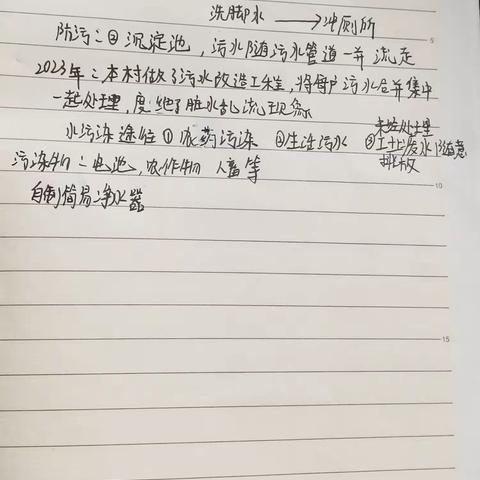 洗脚水 ⟶ 冲厕所
防污：② 沉淀池，污水随污水管道一并流走
2023年：本村做了污水改造工程，将每户污水合并集中
一起处理，度绝了脏水乱流现象
未经处理
水污染途径 ① 农药污染 ②生活污水 ③工业废水随意
排放
污染物：电池，农作物 人畜等
自制简易净水器
5
10
15